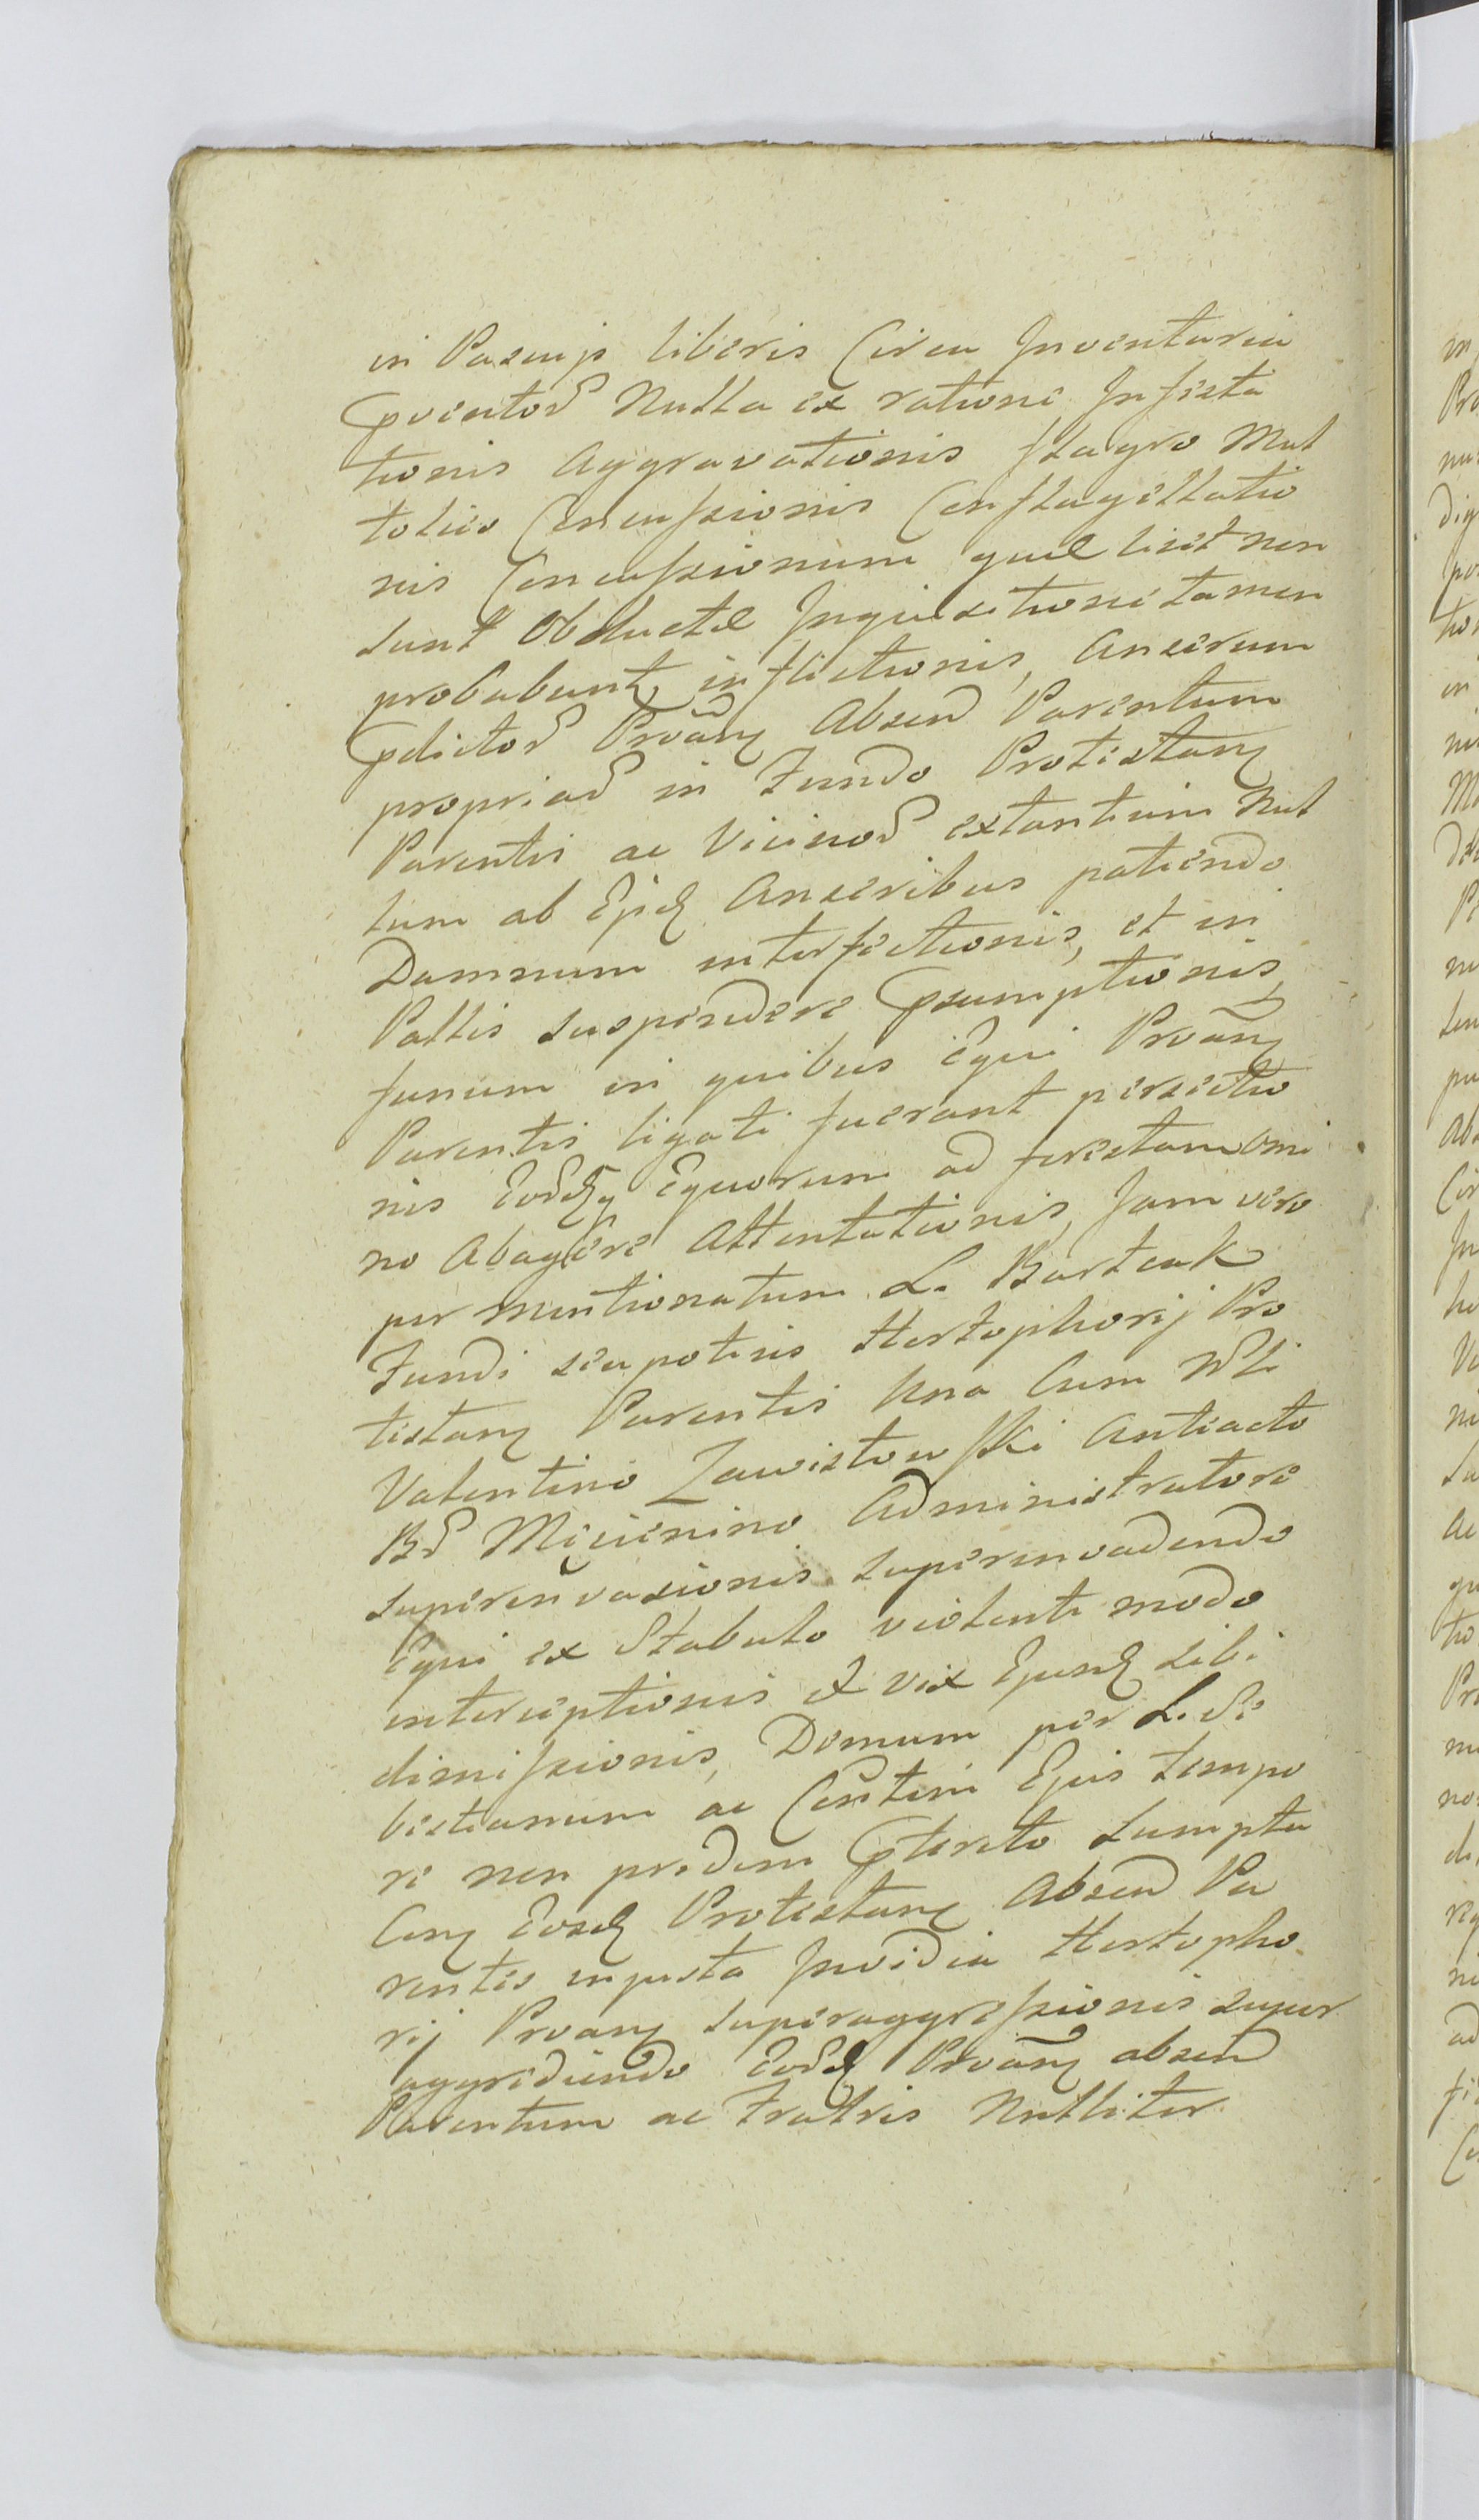 in Pascuis liberis Circa Inventaria
pventor Nulla ex ratione Infesta
tionis Aggravationis flagro Mul
toties Concussionis Conflagellatio
nis Concussionum quae licet non
sunt Obductae Inquisitione tamen
probabunt, inflictionis, Anserum
pdictor Proan Absen Parentum
propriar in Fundo Protestan
Parentis ac Vicinor extantium Nul
lum ab Ejsd Anseribus patiendo
Damnum interfectionis, et in
Pallis suspendere psumptionis,
funum in quibus Equi Proan
Parentis ligati fuerant persectio
nis Eordq Equorum ad festam omi
no Abagere Attentationis, Jam vero
per mentionatum L. Bartcak
Fundi seu potius Hortophorij Pro
testan Parentis Una Cum Nbli
Valentino Zawistowski Anteacto
Br Męcienino Administratore
superinvasionis superinvadendo
Equi ex Stabulo violenti modo
interceptionis et vix Ejusd sibi
dimissionis, Domum per L. Se
bestianum ac Consten Ejus tempo
re non pridem pterito Sumptu
Cun Eosd Protestan Absen Pa
rentis injusta Invidia Hortopho
rij Proan superaggressionis super
aggrediendo Eord Proan absen
Parentum ac Fratris Nulliter